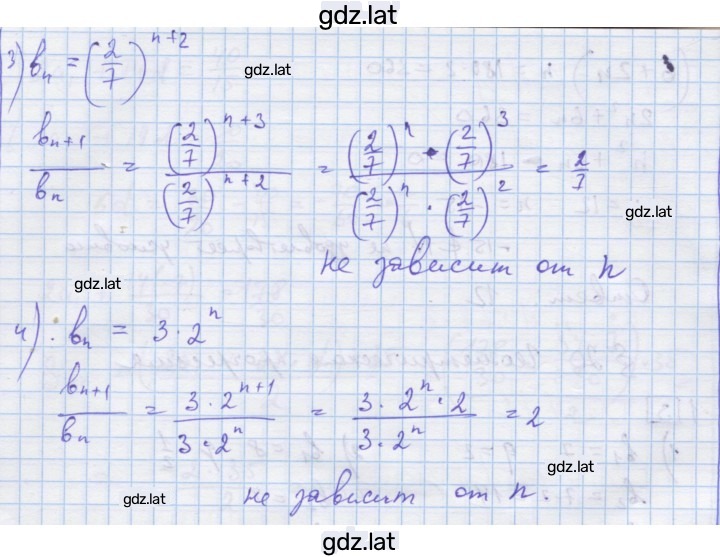 gdz.lat
3) bₙ = (2/7)ⁿ⁺²
gdz.lat
bₙ₊₁/bₙ = (2/7)ⁿ⁺³/(2/7)ⁿ⁺² = (2/7)ⁿ · (2/7)³/(2/7)ⁿ · (2/7)² = 2/7
gdz.lat
gdz.lat
не зависит от n
gdz.lat
4) bₙ = 3 · 2ⁿ
bₙ₊₁/bₙ = 3 · 2ⁿ⁺¹/3 · 2ⁿ = 3 · 2ⁿ · 2/3 · 2ⁿ = 2
gdz.lat
gdz.lat
не зависит от n.
gdz.lat